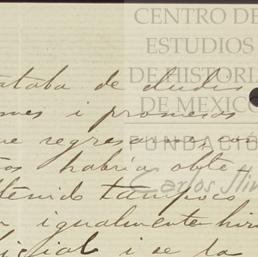 CENTRO DE
ESTUDIOS
DE HISTORIA
DE MEXICO
FUNDACIÓN
Carlos Slim
taba de dudis
mes i promesas
ue regrese
os habria obte
tenido tampoco
igualmente hir
i se la